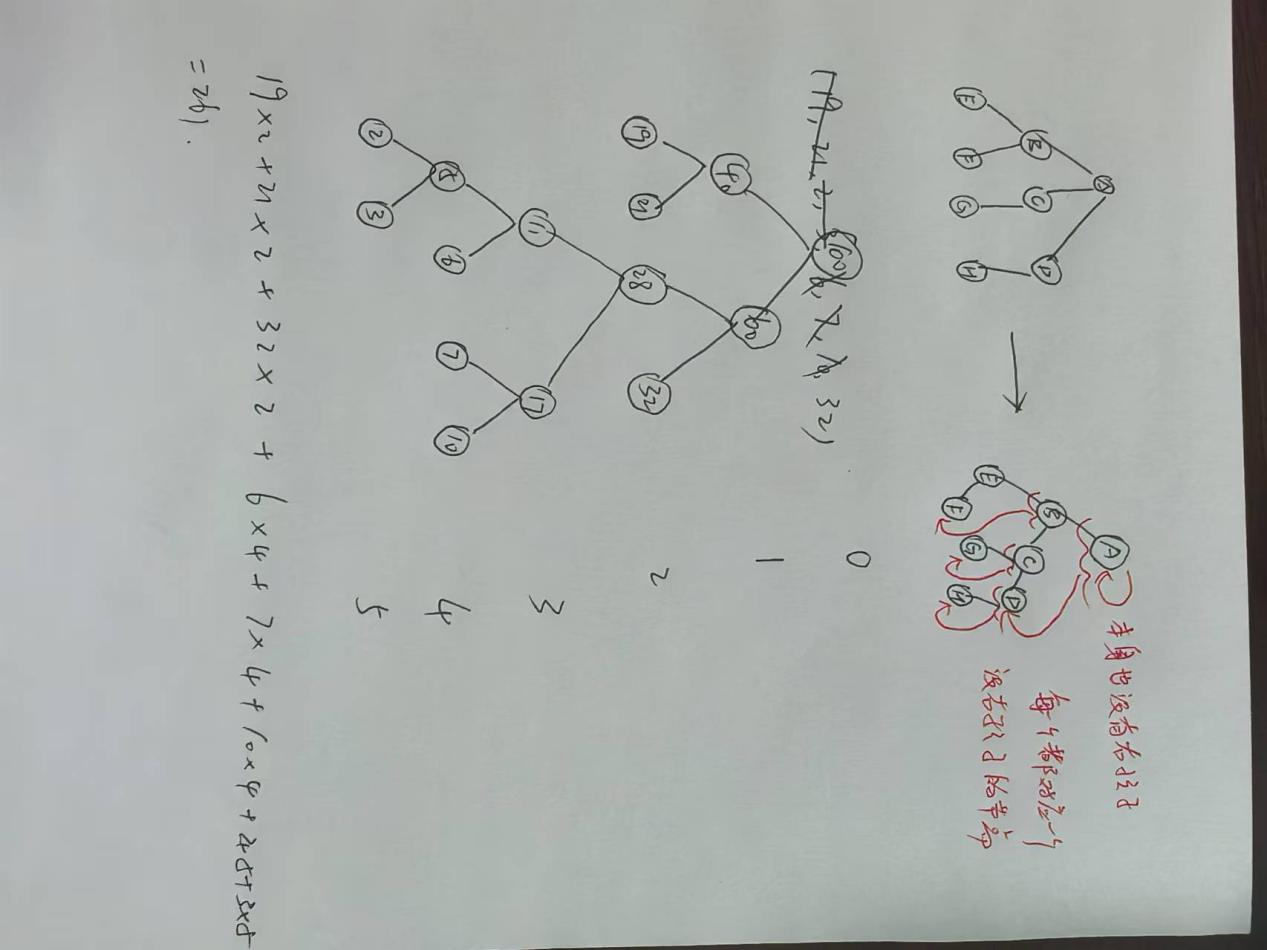 A
B C D
E F G H
A
B
C
D
E F G H
本身也没有右孩子
每个都对应一个
没右孩子的节点
100
40 60
19 21 28 32
11 17
5 6 7 10
2 3
0
1
2
3
4
5
19×2+21×2+32×2+6×4+7×4+10×4+2×5+3×5
=261.